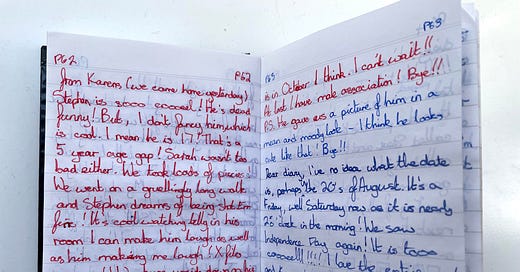 P62 P62
from Karens (we came home yesterday)
Stephen is sooo coooool! He's dead
funny! But, I don't fancy him, which
is cool. I mean he is 17! That's a
5 year age gap! Sarah wasn't too
bad either. We took loads of piccies
We went on a gruellingly long walk
and Stephen dreams of being shot Tim
It's cool watching telly in his
room I can make him laugh as well
as him making me laugh! X files
P63 P63
is in October. I think. I can't wait!!
At last I have male association! Bye!!
P.S. He gave us a picture of him in a
mean and moody look - I think he looks
cute like that! Bye!!
Dear diary, I've no idea what the date
is, perhaps the 20's of August. It's a
Friday, well Saturday now as it is nearly
in the morning! We saw
Independence Day again! It is tooo
coooool!!!!! I love the